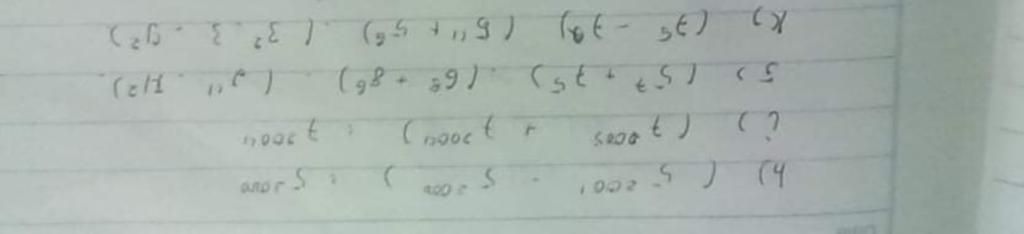 h) (5²⁰⁰¹ - 5²⁰⁰⁰) : 5²⁰⁰⁰
i) (7²⁰⁰⁵ + 7²⁰⁰⁴) : 7²⁰⁰⁴
J) (5⁷ + 7⁵) . (6⁸ + 8⁶) .
K) (7⁵ - 7⁹) (5⁴ + 5⁶) . (3³ . 3 - 9²)